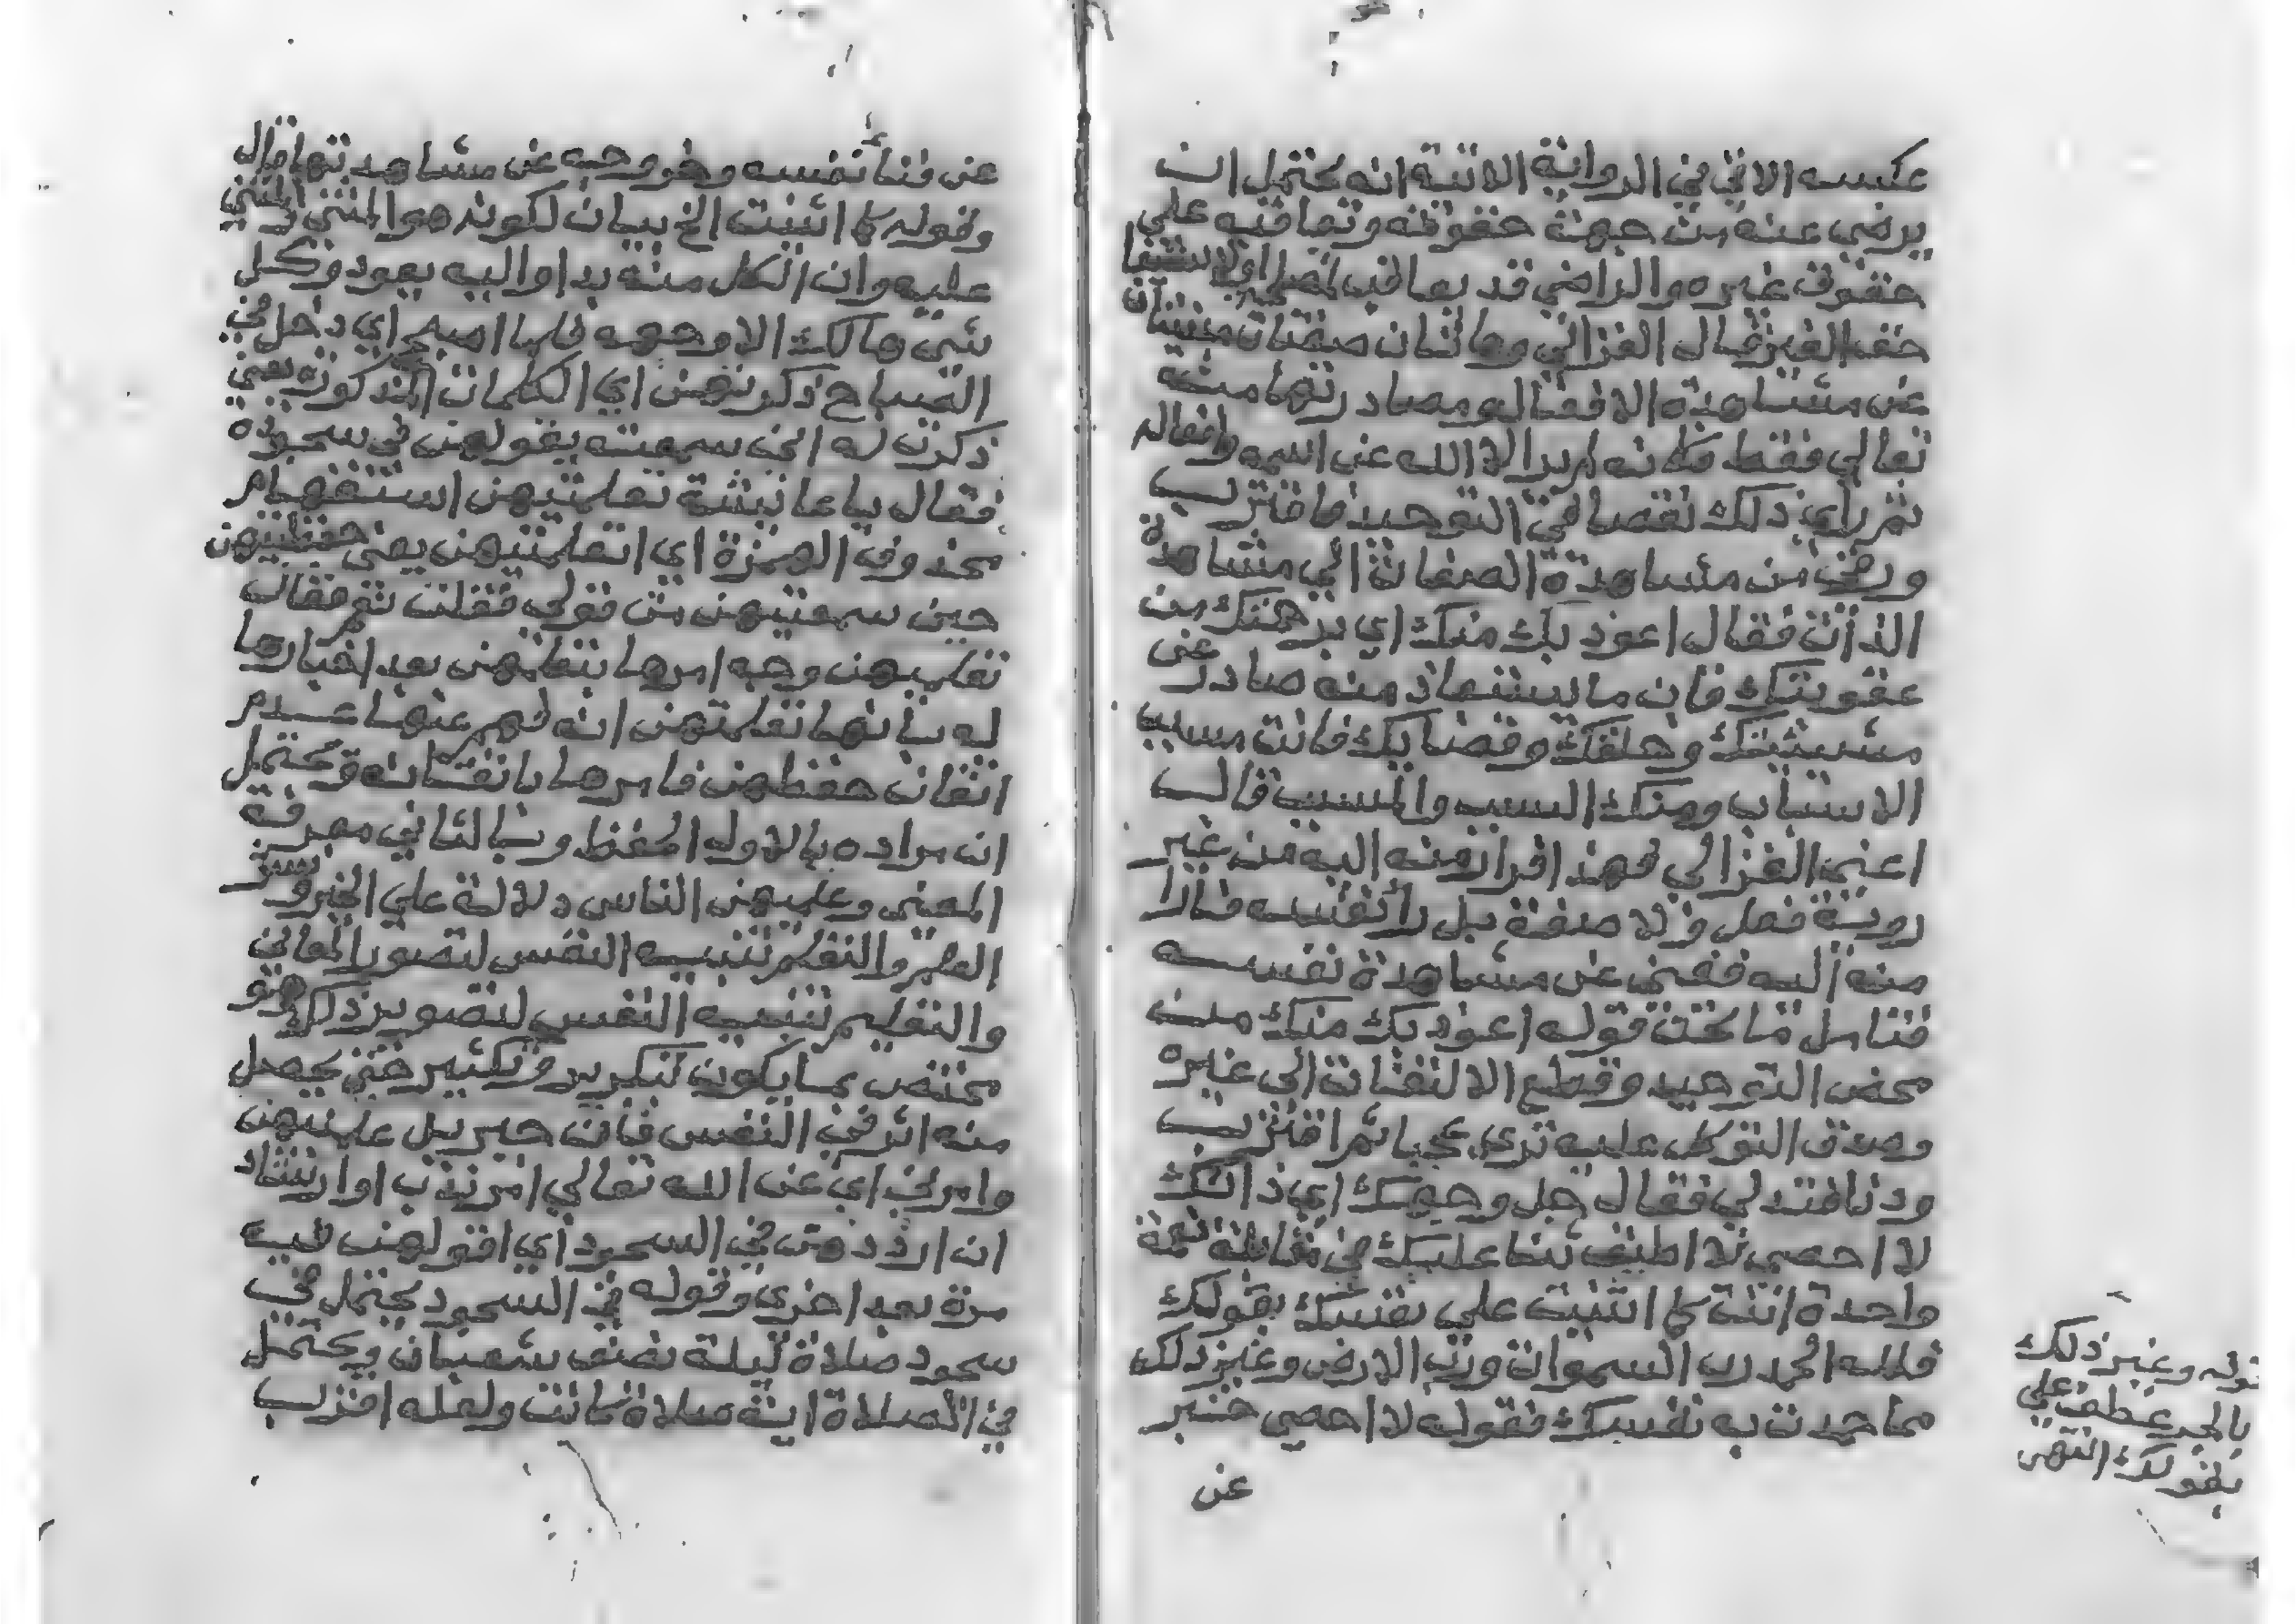 عكسه الاتي في الرواية الاتية انه يحتمل ان
يرضى عنه من جهة حقوقه وتعاقبه علي
حقوق غيره والراضي قد يعاقب
حق الغير قال الغزالي وهاتان صفتان
عن مشاهدة الافعال ومصادرتها منه
تعالي فقط فكانه لم ير الا الله عن اسمه وافعاله
ثم راي ذلك نقصا في التوحيد فاقترب
ورقي من مشاهدة الصفات الي مشاهدة
الذات فقال اعوذ بك منك اي برحمتك من
عقوبتك فان ما يستعاذ منه صادر عن
مشيئتك وخلقك وقضايك فانت مسبب
الاسباب ومنك السبب والمسبب قال
اعني الغزالي فهذا فرار منه اليه من غير
روية فعل ولا صفة بل رأ نفسه فارا
منه اليه ففنى عن مشاهدة نفسه
فتامل ما تحت قوله اعوذ بك منك من
محض التوحيد وقطع الالتفات الى غيره
وصدق التوكل عليه تري عجبا ثم اقترب
ودنا فتدلي فقال جل وجهك اي ذاتك
لا احصي لا اطيق ثنا عليك في مقابلة نعمة
واحدة انت كما اثنيت علي نفسك بقولك
فلله الحمد رب السموات ورب الارض وغير ذلك
مما حمدت به نفسك فقوله لا احصي خبر
عن
قوله وغير ذلك
بالجر عطف علي
بقولك انتهى
عن فنا نفسه وخروجه عن مشاهدتها
وقوله كما اثنيت الخ بيان لكونه هو المثني المثني
عليه وان الكل منه بدا واليه يعود وكل
شي هالك الا وجهه فلما اصبح اي دخل في
الصباح ذكرتهن اي الكلمات المذكورة يعني
ذكرت له اني سمعته يقولهن في سجوده
فقال يا عائشة تعلمتيهن استفهام
محذوف الهمزة اي اتعلمتيهن يعني حفظتيهن
حين سمعتيهن من قولي فقلت نعم فقال
تعلميهن وجه امرها بتعلمهن بعد اخبارها
له بانها تعلمتهن انه فهم عنها عدم
اتقان حفظهن فامرها باتقانه ويحتمل
ان مراده بالاول الحفظ وبالثاني معرفة
المعنى وعلميهن الناس دلالة علي الخير ونشر
العلم والتعلم تنبيه النفس لتصور المعاني
والتعليم تنبيه النفس لتصوير ذلك وهو
مختص بما يكون بتكرير وتكثير حتى يحصل
منه اثر في النفس فان جبريل علمنيهن
وامرني اي عن الله تعالي امر ندب او ارشاد
ان ارددهن في السجود اي اقولهن فيه
مرة بعد اخري وقوله في السجود يحتمل في
سجود صلاة ليلة نصف شعبان ويحتمل
في الصلاة اية صلاة كانت ولعله اقرب